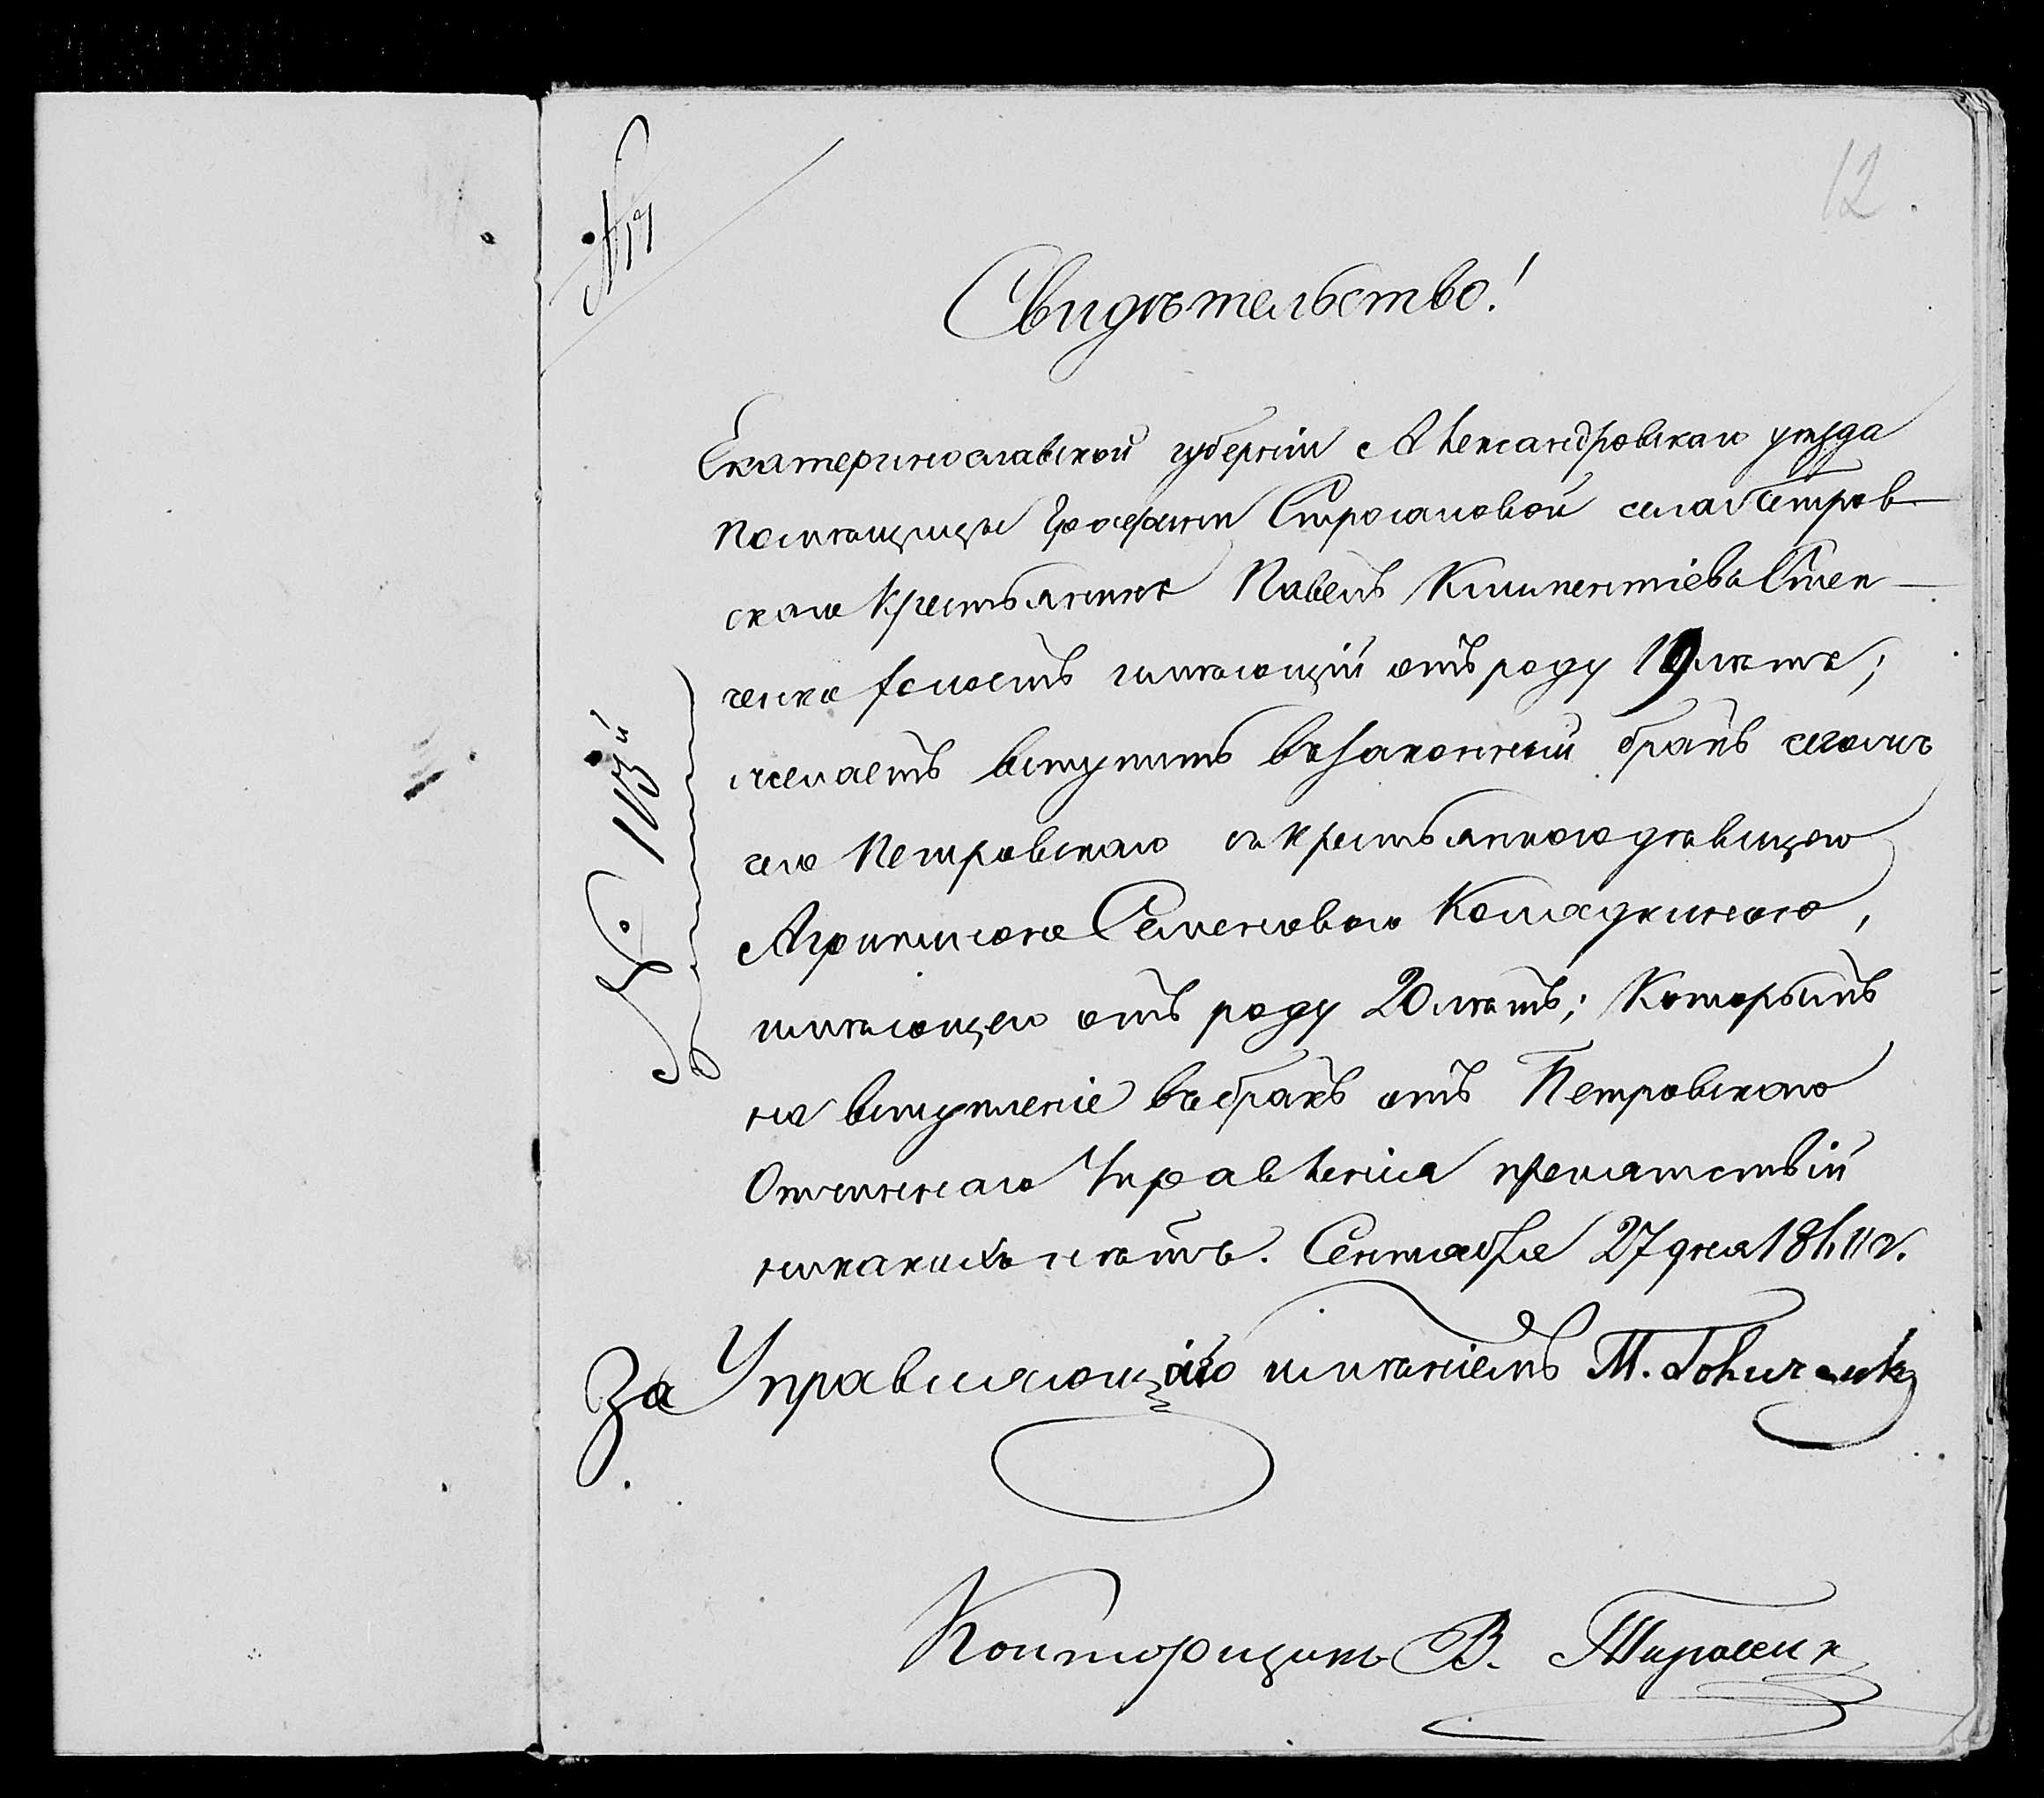 12.
№ 17
Свидѣтельство!
Екатеринославской губерніи Александровскаго уѣзда
помѣщицы Графини Строгановой села Петров-
скаго Крестьянинъ Павелъ Климентіевъ Степ-
ченко холостъ имѣющій отъ роду 19 лѣтъ;
желаетъ вступить въ законный бракъ сегожъ
села Петровскаго съ крестьянкою дѣвицею
Агрипиною Семеновою Колядкиною,
имѣющею отъ роду 20 лѣтъ; Которымъ
на вступленіе въ бракъ отъ Петровскаго
Отчиннаго Управленія препятствій
никакихъ нѣтъ. Сентября 27 дня г.
№ 113й
За Управляющаго имѣніемъ М.
Конторщикъ В.